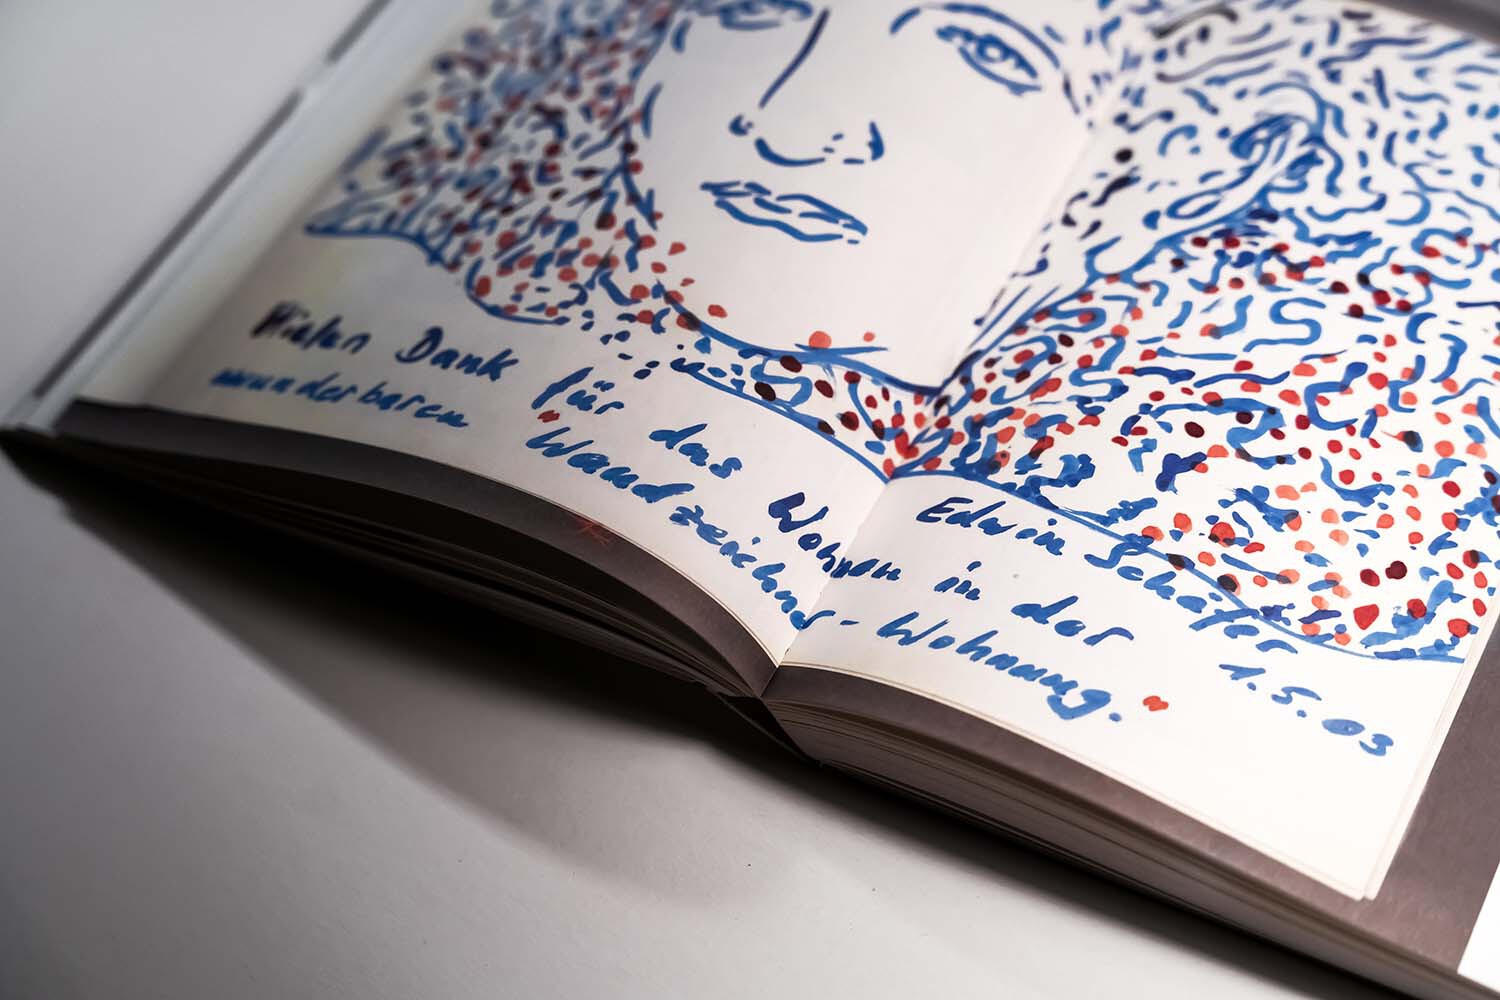 Vielen Dank für das Wohnen in der
wunderbaren Wandzeichner-Wohnung.
Edwin Schäfer
1.5.03